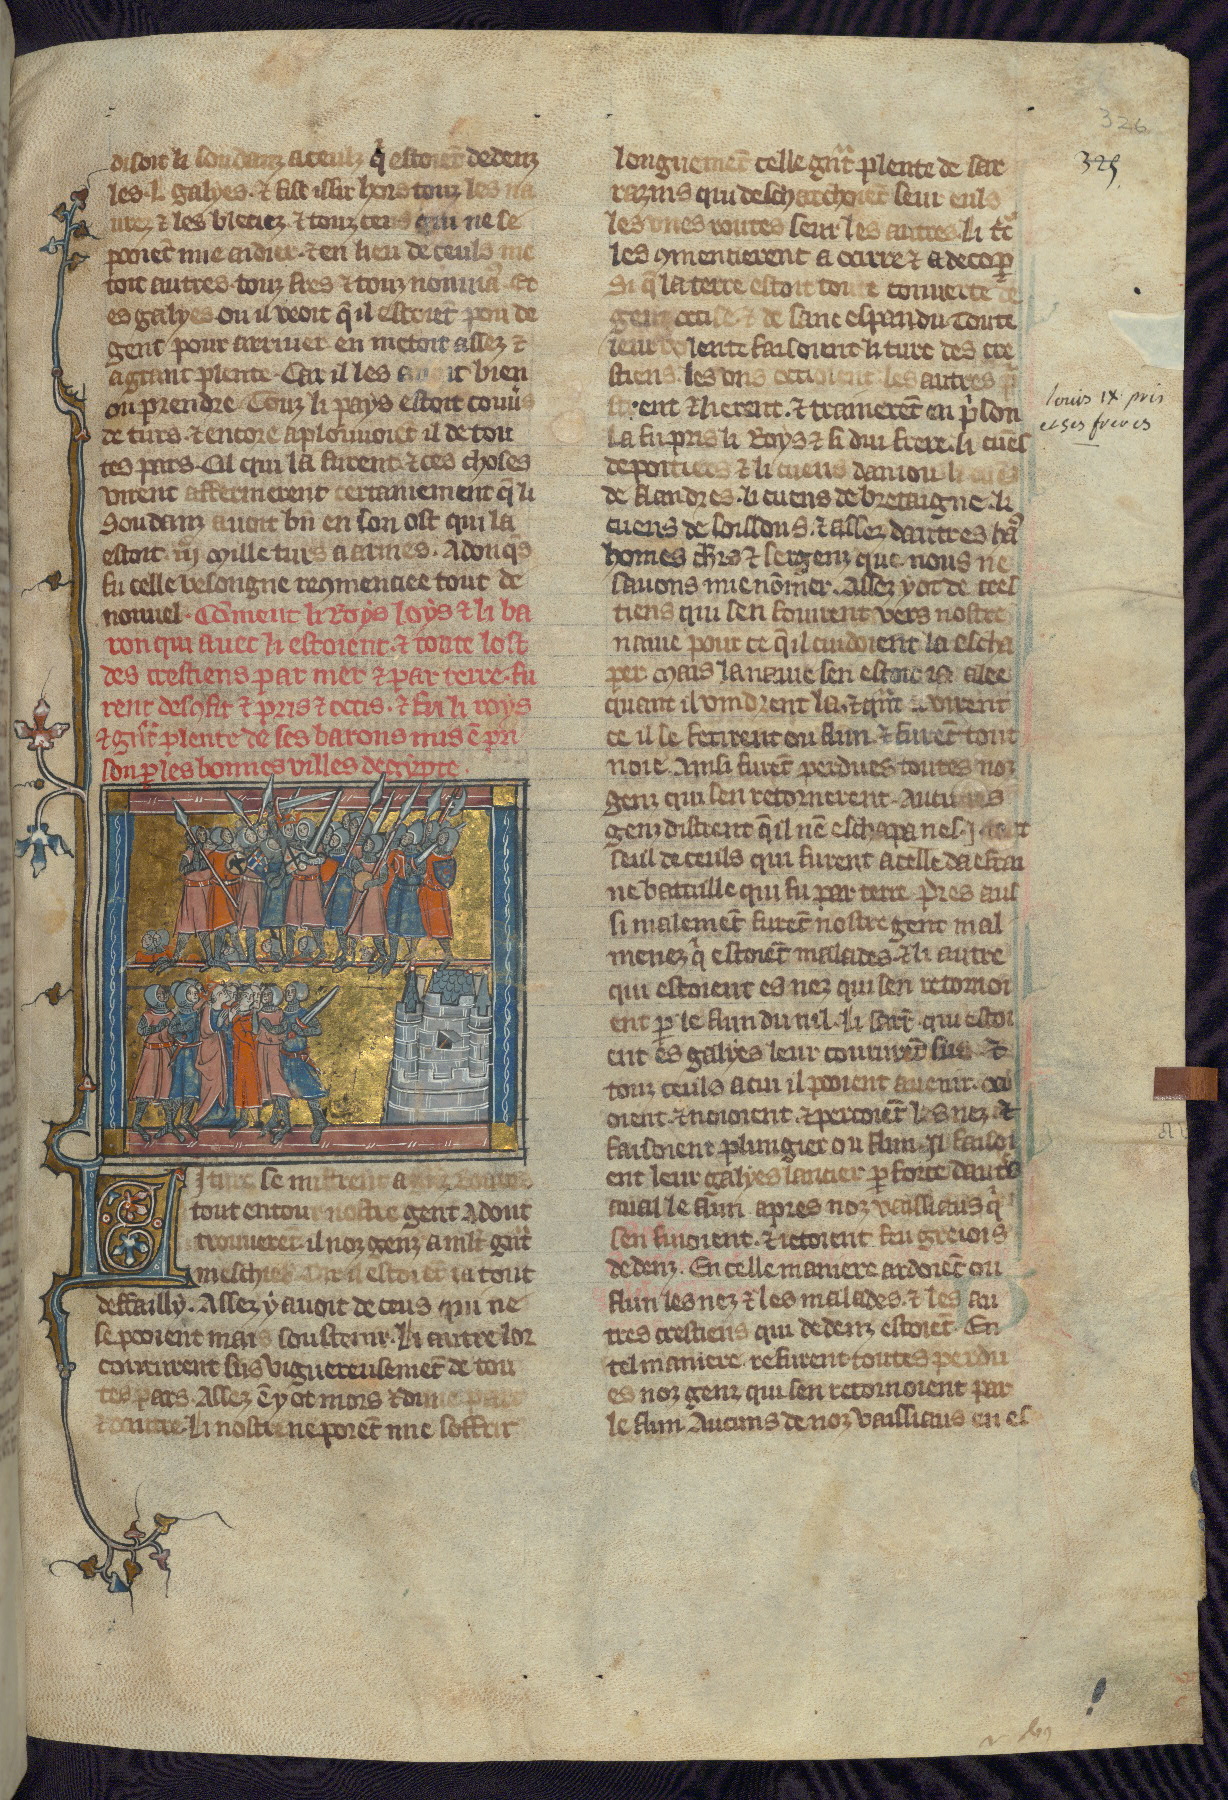 disoit li soudanz a ceulz q̃ estoiẽt dedenz
les .l. galyes. ⁊ fist issir hors touz les na
urez ⁊ les bleciez. ⁊ touz ceus qui ne se
pooiẽt mie aidier. ⁊ en lieu de ceuls me
toit autres touz fres ⁊ touz nouuiaˀ. Et
es galyes ou il veoit q̃ il estoiẽt pou de
gent pour arriuer en metoit assez ⁊
a grant plente. Car il les auoit bien
ou prendre. Touz li pays estoit couũs
de turs. ⁊ encore aplouuoiẽt il de tou
tes pars. Cil qui la furent. ⁊ ces choses
virent affermerent certainement q̃ li
Soudanz auoit bñ en son ost qui la
estoit mille turs a armes. Adonqˀs
fu celle besongne recmenciee tout de
nouuel. Cõment li Roys loys ⁊ li ba
ron qui auec li estoient. ⁊ toute lost
des crestiens par mer ⁊ par terre. fu
rent descfit ⁊ pris ⁊ occis. ⁊ fu li roys
⁊ gñt plente de ses barons mis ẽ pri
son p̱ les bonnes villes degypte.
Li turc se mistrent a
tout entour nostre gent Adont
trouuerẽt il noz genz a mlt̃ gñt
meschief. Car il estoiẽt ia tout
deffailly. Assez y auoit de ceus qui ne
se pooient mais soustenir. Li autre lor
coururent sus viguereusemẽt de tou
tes pars. Assez ẽ y ot mors ⁊ dune part
⁊ dautre. Li nostre ne porẽt mie soffrir
longuemẽt celle gñt plente de sar
razins qui deschარchoiẽt seur euls
les vnes routes seur les autres. li tˀc
les cmencierent a occirre ⁊ a decop̱
Si q̃ la terre estoit toute couuerte de
genz occise ⁊ de sanc espandu Toute
leur volente faisoient li turc des cre
stiens. les vns occioient. les autres p̃
ent ⁊ lierent. ⁊ trainerẽt en p̃son
La fu pris li Roys ⁊ si dui frere. li cuẽs
de poitiers ⁊ li cuens daniou li cuẽs
de flandres. li cuens de bretaigne. li
cuens de soissons. ⁊ assez dautres haˀ
homes chr̃s ⁊ sergenz que nous ne
sauons mie nõmer. Assez y ot de cres
tiens qui sen fouirent vers nostre
nauie pour ce q̃ il cuidoient la escha
per Mais la nauie sen estoit ia alee
quant il vindrent la. ⁊ qñt il virent
ce il se ferirent ou flun. ⁊ furẽt tout
noie. Ainsi furẽt perdues toutes noz
genz qui sen retornerent. Aucunes
genz distrent q̃ il nẽ eschapa nes .j.
seul de ceuls qui furent a celle daerrai
ne bataille qui fu par terre. Pres aus
si malemẽt furẽt nostre gent mal
menez q̃ estoiẽt malades. ⁊ li autre
qui estoient es nez qui sen retornoi
ent p̱ le flun du nil. Li sarr̃. qui estoi
ent es galyes leur coururẽt sus. ⁊
touz ceuls a cui il pooient auenir. occi
oient. ⁊ noioient. ⁊ percoiẽt les nez. ⁊
faisoient plungier ou flun. Il faisoi
ent leur galyes lancier p̱ force dauirõs
aual le flun apres noz vaissiaus q̃
sen fuioient. ⁊ ietoient feu greiois
dedenz. En celle maniere ardoiẽt ou
flun les nez ⁊ les malades. ⁊ les au
tres crestiens qui dedenz estoiẽt. En
tel maniere refurent toutes perdu
es noz genz qui sen retornoient par
le flun. Aucuns de noz vaissiaus en es
326
325.
Louis IX pris
et ses freres